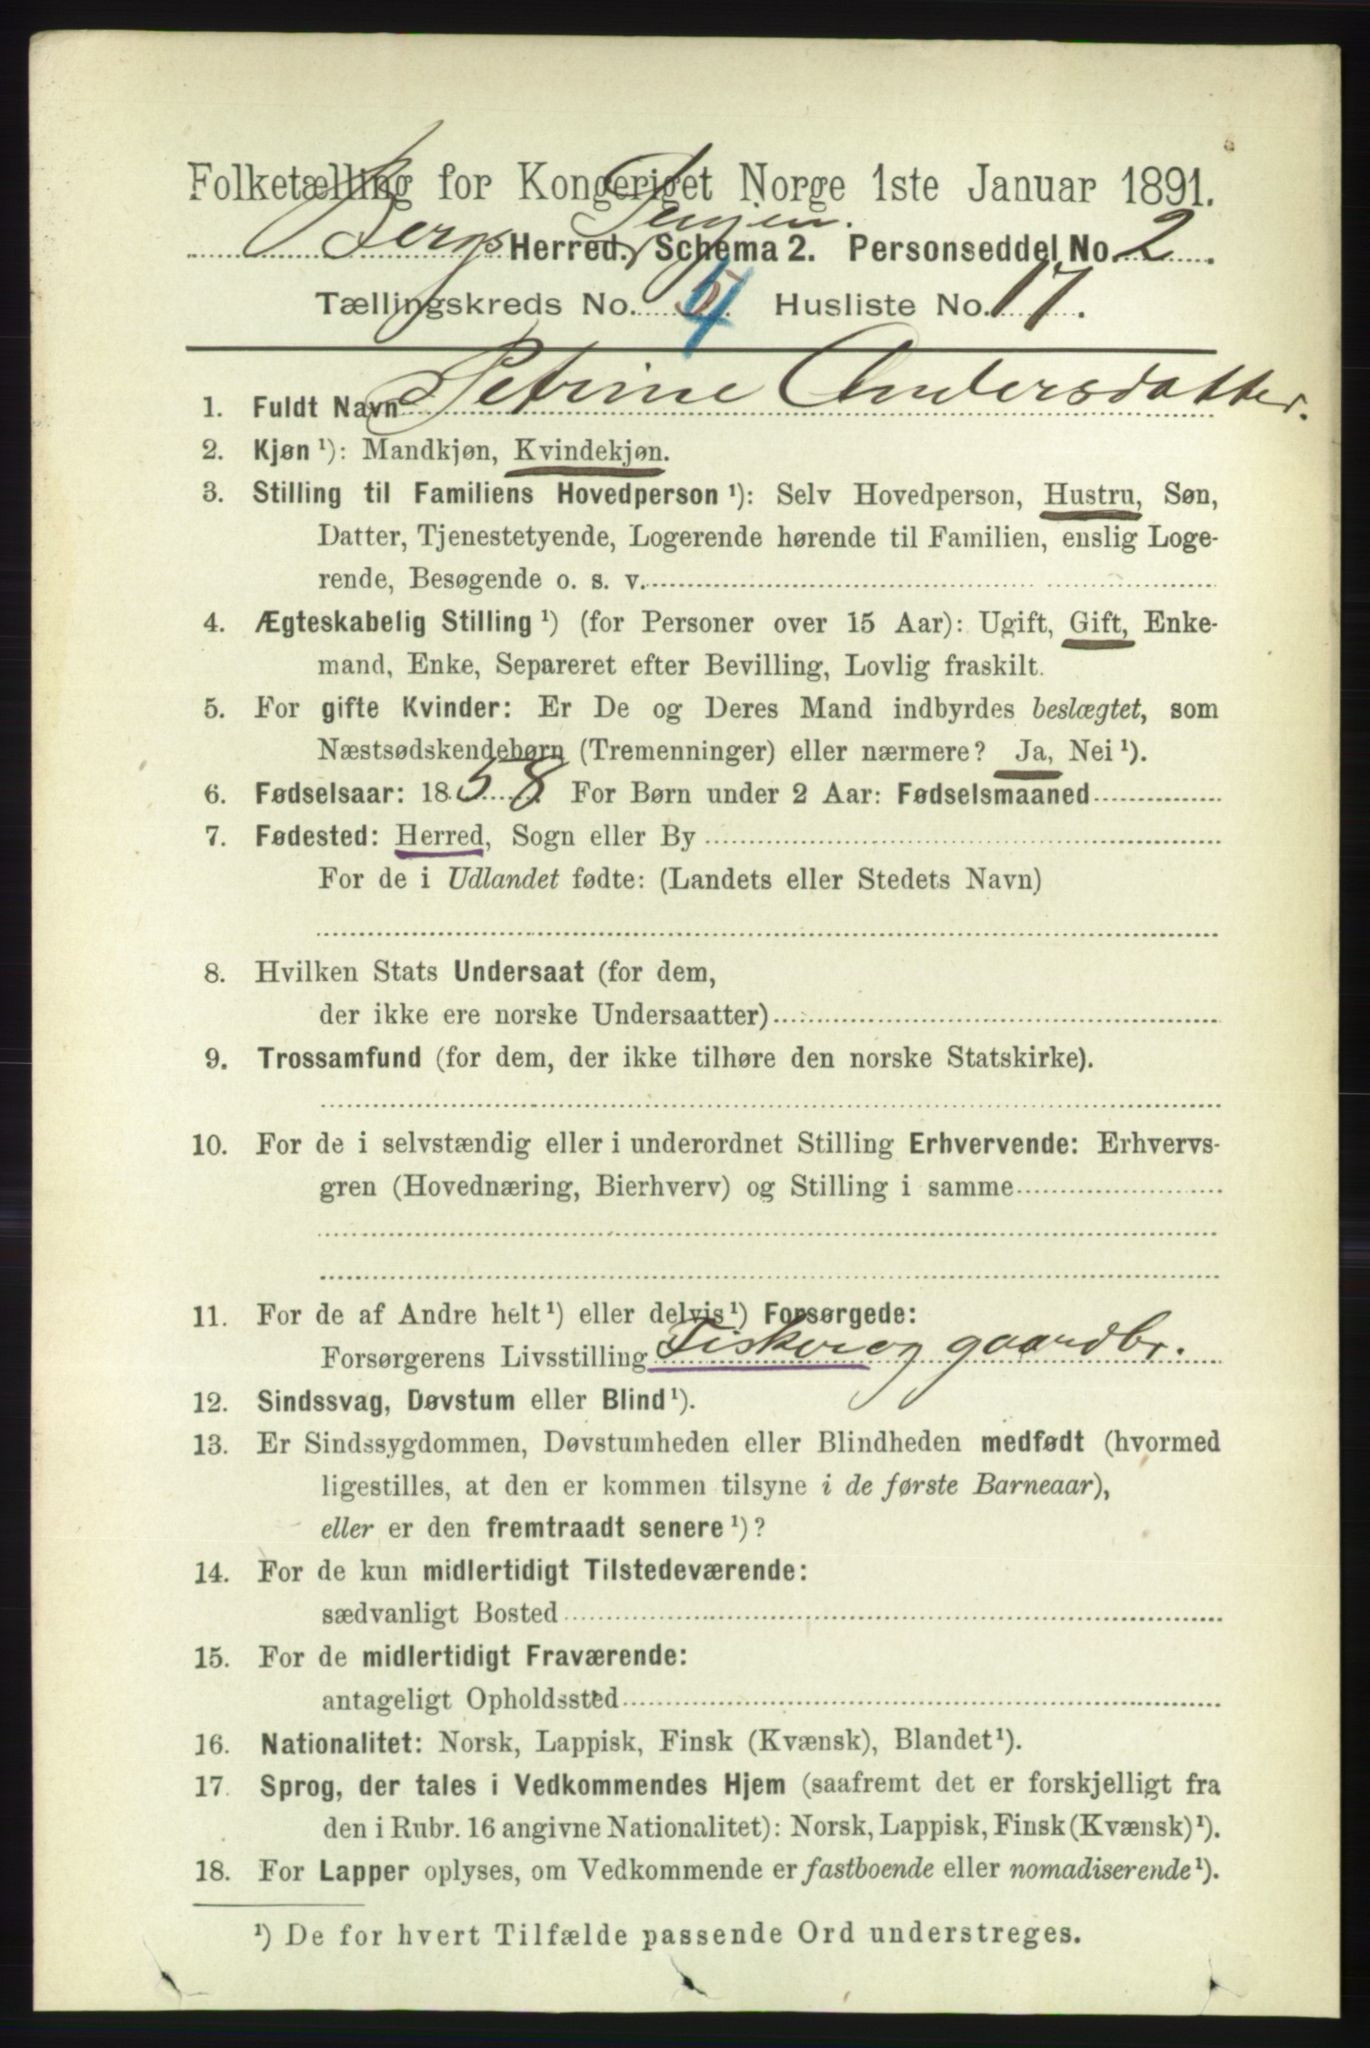 Folketælling for Kongeriget Norge 1ste Januar 1891.
Bergs Herred. Schema 2. Personseddel No. 2.
Tællingskreds No. 4 Husliste No. 17.
1. Fuldt Navn Petrine Andersdatter.
2. Kjøn ¹): Mandkjøn, Kvindekjøn.
3. Stilling til Familiens Hovedperson ¹): Selv Hovedperson, Hustru, Søn,
Datter, Tjenestetyende, Logerende hørende til Familien, enslig Loge-
rende, Besøgende o. s. v.
4. Ægteskabelig Stilling ¹) (for Personer over 15 Aar): Ugift, Gift, Enke-
mand, Enke, Separeret efter Bevilling, Lovlig fraskilt.
5. For gifte Kvinder: Er De og Deres Mand indbyrdes beslægtet, som
Næstsødskendebørn (Tremenninger) eller nærmere? Ja, Nei ¹).
6. Fødselsaar: 1858. For Børn under 2 Aar: Fødselsmaaned
7. Fødested: Herred, Sogn eller By
For de i Udlandet fødte: (Landets eller Stedets Navn)
8. Hvilken Stats Undersaat (for dem,
der ikke ere norske Undersaatter)
9. Trossamfund (for dem, der ikke tilhøre den norske Statskirke).
10. For de i selvstændig eller i underordnet Stilling Erhvervende: Erhvervs-
gren (Hovednæring, Bierhverv) og Stilling i samme
11. For de af Andre helt ¹) eller delvis ¹) Forsørgede:
Forsørgerens Livsstilling Fisker og gaardbr.
12. Sindssvag, Døvstum eller Blind ¹).
13. Er Sindssygdommen, Døvstumheden eller Blindheden medfødt (hvormed
ligestilles, at den er kommen tilsyne i de første Barneaar),
eller er den fremtraadt senere ¹)?
14. For de kun midlertidigt Tilstedeværende:
sædvanligt Bosted
15. For de midlertidigt Fraværende:
antageligt Opholdssted
16. Nationalitet: Norsk, Lappisk, Finsk (Kvænsk), Blandet ¹).
17. Sprog, der tales i Vedkommendes Hjem (saafremt det er forskjelligt fra
den i Rubr. 16 angivne Nationalitet): Norsk, Lappisk, Finsk (Kvænsk) ¹).
18. For Lapper oplyses, om Vedkommende er fastboende eller nomadiserende ¹).
¹) De for hvert Tilfælde passende Ord understreges.